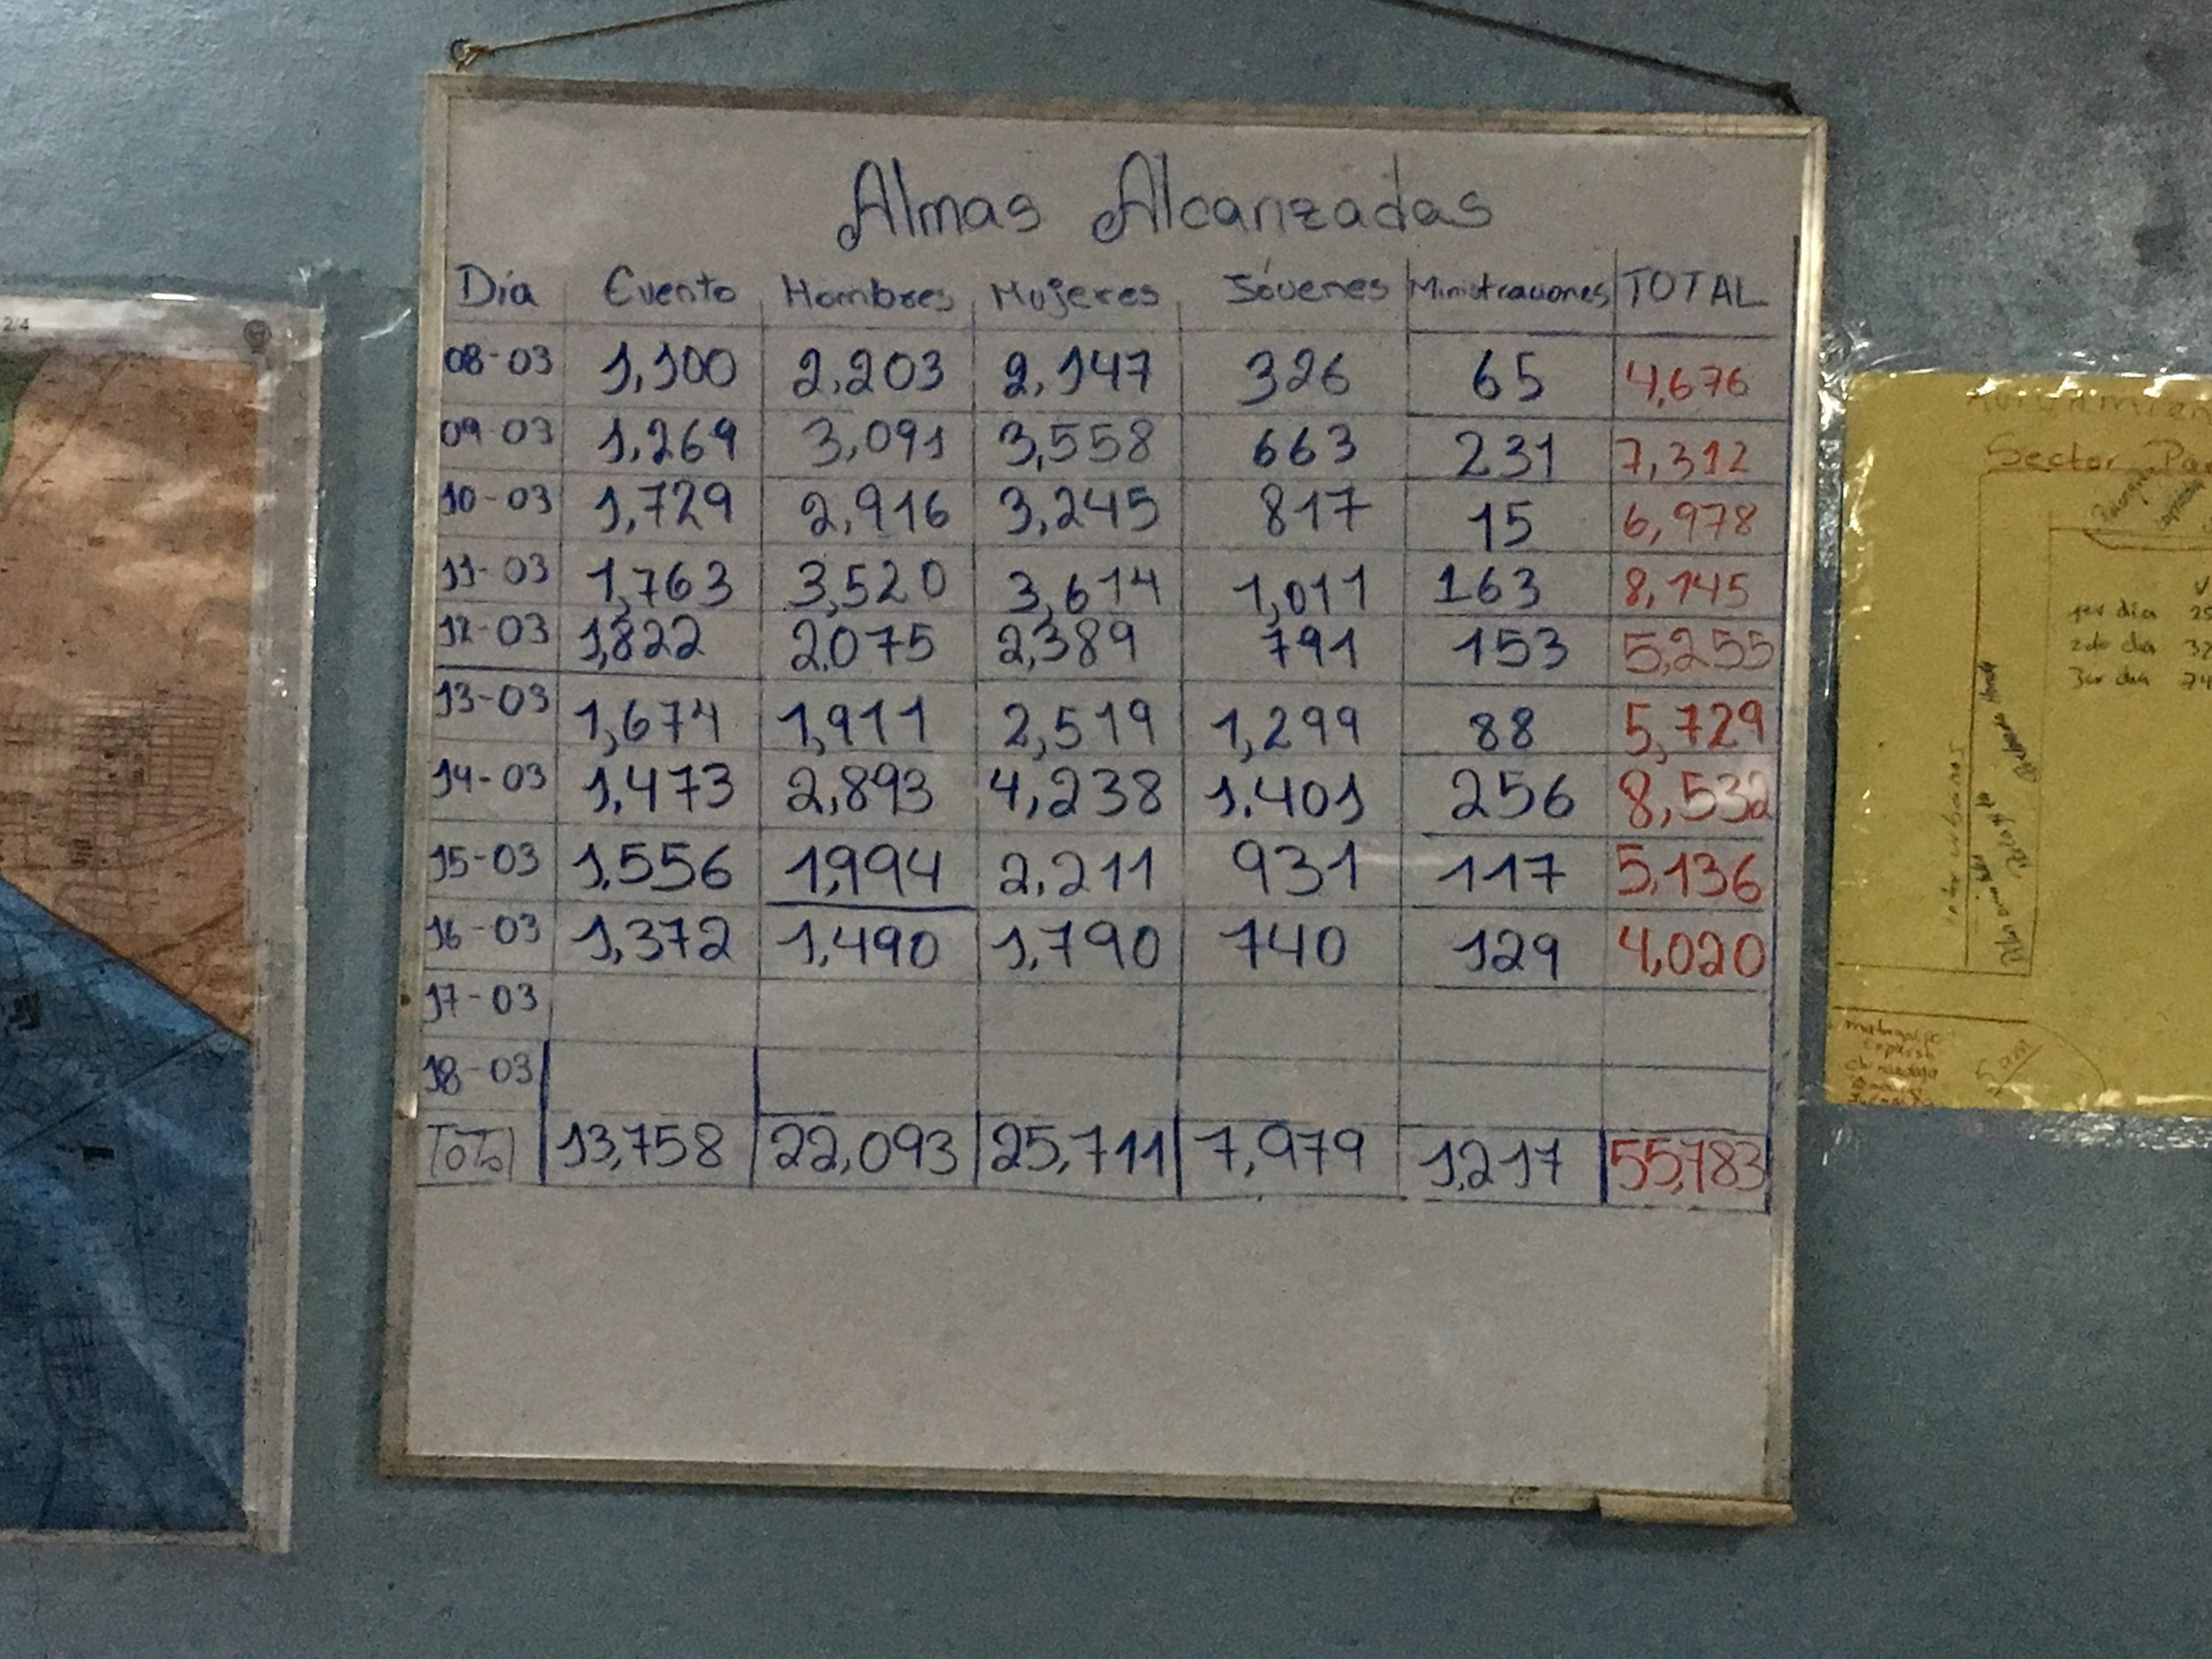 Almas Alcanzadas
Día Evento Hombres Mujeres Jóvenes Ministraciones TOTAL
08-03 1,100 2,203 2,147 326 65 4,676
09-03 1,269 3,091 3,558 663 231 7,312
10-03 1,729 2,916 3,245 817 15 6,978
11-03 1,763 3,520 3,614 1,011 163 8,145
12-03 1,822 2,075 2,389 791 153 5,255
13-03 1,674 1,911 2,519 1,299 88 5,729
14-03 1,473 2,893 4,238 1.401 256 8,532
15-03 1,556 1,994 2,211 931 117 5,136
16-03 1,372 1,490 1,790 740 129 4,020
17-03
18-03
Total 13,758 22,093 25,711 7,979 1,217 55,783
2/4
Sector
1er dia
2do dia
3er dia 74
5 am